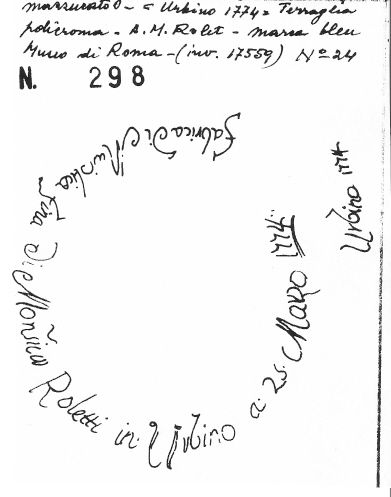 mazzurato - "Urbino 1774" Terraglia
policroma - A. M. Rolet - marca bleu
Museo di Roma - (inv. 17559) Nº 24
N. 298
Fabrica Di Maiolica Fina Di Monsieur Roletti in Urbino a: 28: Marzo 1774
Urbino 1774